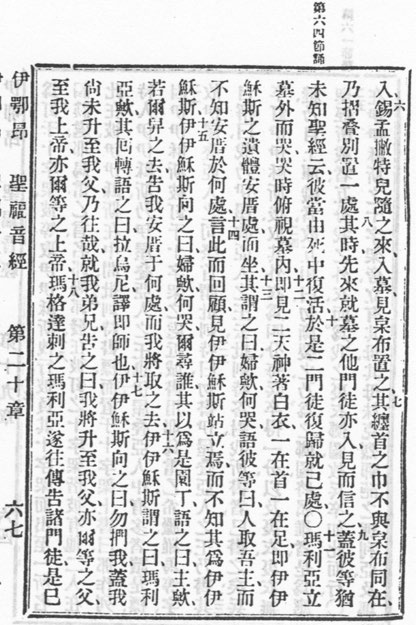 第六四節誦
六入錫孟撇特兒隨之來、入墓見枲布置之、七其纏首之巾不與枲布同在、
乃摺疊別置一處、八其時先來就墓之他門徒亦入、見而信之、九蓋彼等猶
未知聖經云、彼當由死中復活、十於是二門徒復歸就己處、〇十一瑪利亞立
墓外而哭、哭時俯視墓內、十二即見二天神著白衣、一在首一在足、即伊伊
穌斯之遺體安厝處而坐、十三其謂之曰、婦歟何哭、語彼等曰、人取吾主而
不知安厝於何處、十四言此而回顧見伊伊穌斯站立焉、而不知其爲伊伊
穌斯、十五伊伊穌斯向之曰、婦歟何哭、爾尋誰、其以爲是園丁、語之曰、主歟、
若爾舁之去、告我安厝于何處、而我將取之去、十六伊伊穌斯謂之曰、瑪利
亞歟、其囘轉語之曰、拉烏尼、譯即師也、十七伊伊穌斯向之曰、勿捫我、蓋我
尚未升至我父、乃往哉、就我弟兄告之曰、我將升至我父、亦爾等之父、
至我上帝、亦爾等之上帝、十八瑪格達剌之瑪利亞遂往傳告諸門徒、是已
伊鄂昂 聖福音經 第二十章 六七